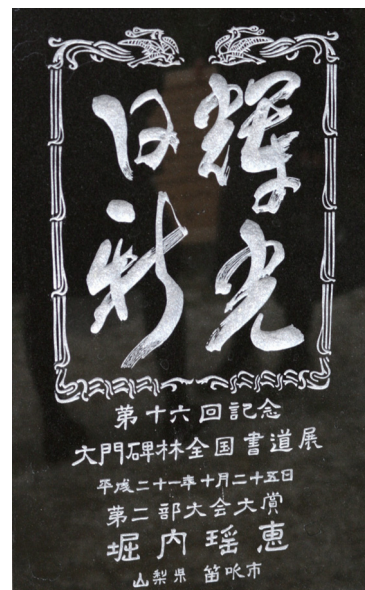 輝光
日新
第十六回記念
大門碑林全国書道展
平成二十一年十月二十五日
第二部大会大賞
堀内瑶恵
山梨県 笛吹市